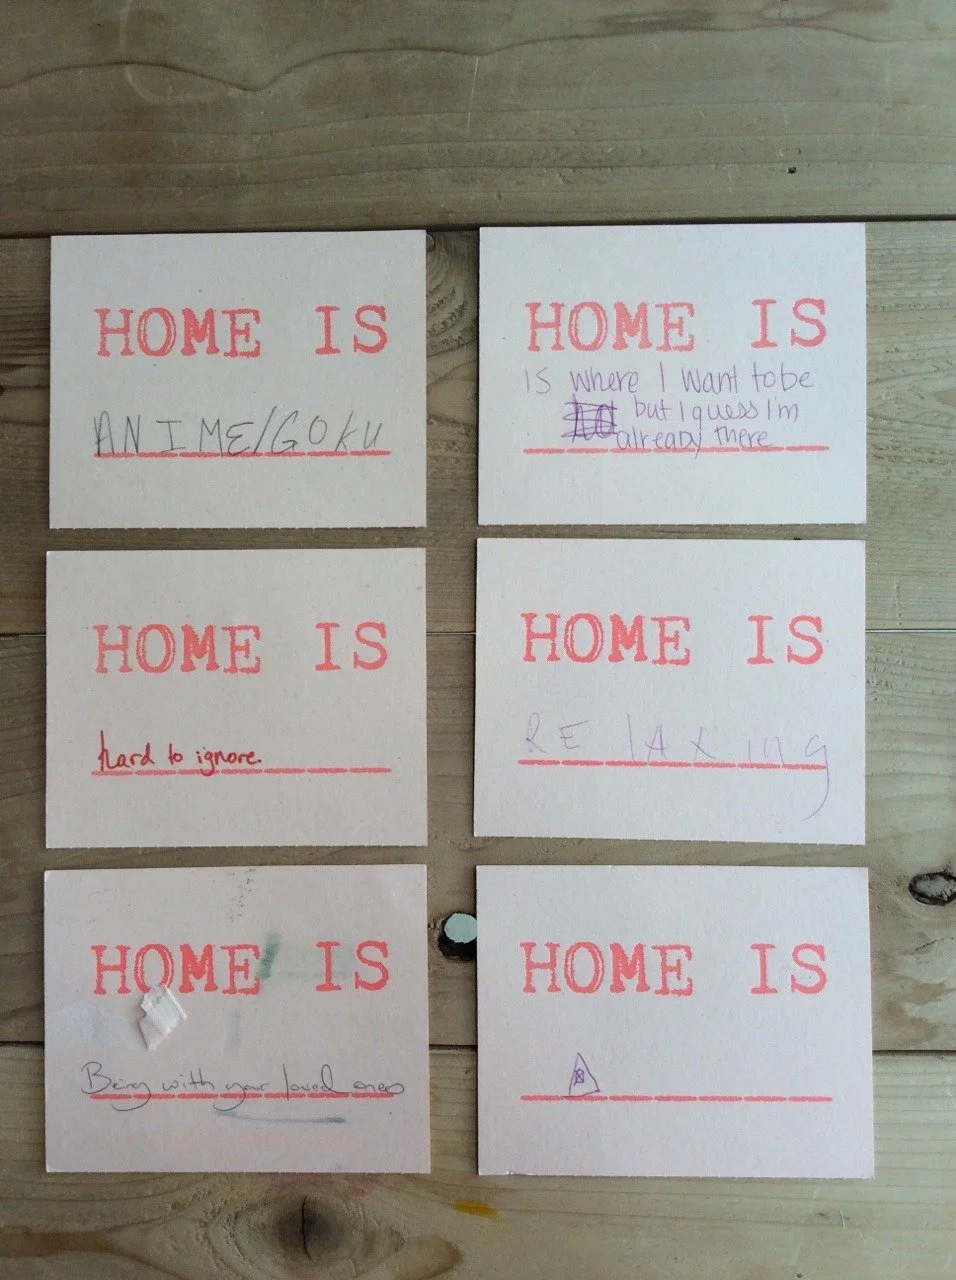 HOME IS
ANIME/GOKU
HOME IS
IS where I want to be
but I guess I'm
already there
HOME IS
hard to ignore.
HOME IS
RElAxing
HOME IS
Being with your loved ones
HOME IS